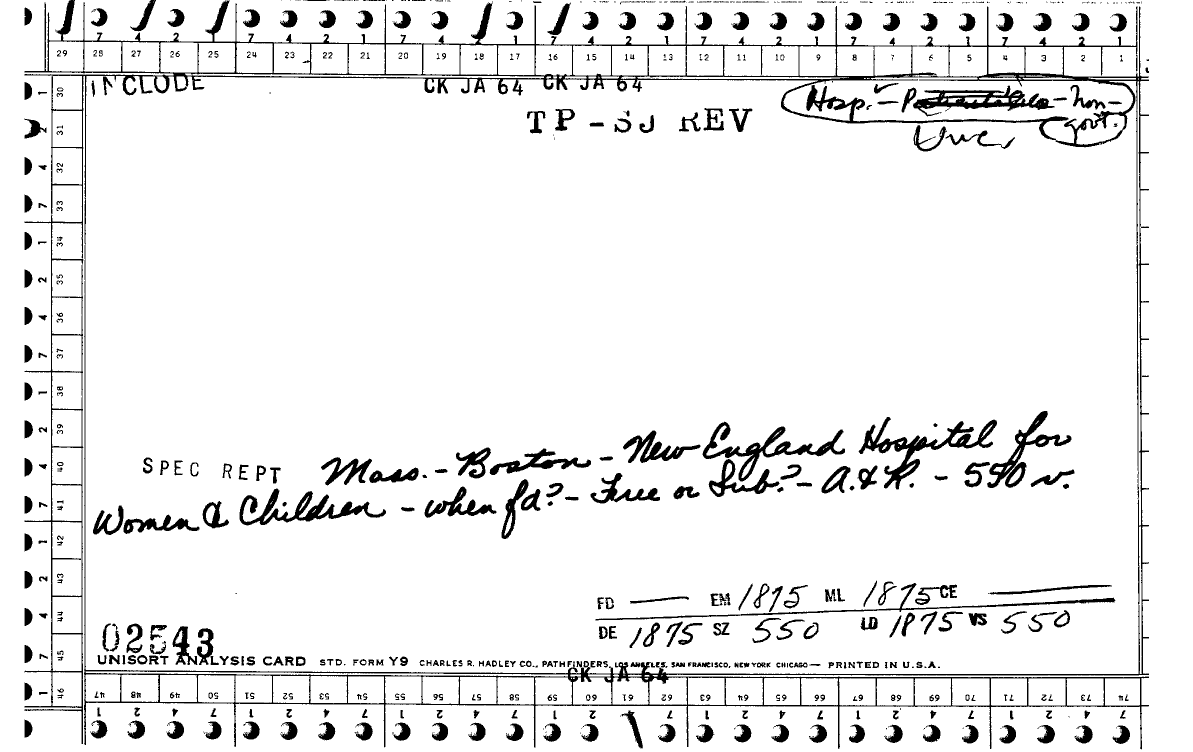 7 4 2 1 7 4 2 1 7 4 2 1 7 4 2 1 7 4 2 1 7 4 2 1 7 4 2 1
29 28 27 26 25 24 23 22 21 20 19 18 17 16 15 14 13 12 11 10 9 8 7 6 5 4 3 2 1
INCLUDE CK JA 64 CK JA 64
Hosp. - non-
govt.
TP - SJ REV
30
31
32
33
34
35
36
37
38
39
40
41
42
43
44
45
46
SPEC REPT Mass. - Boston - New England Hospital for
Women & Children - when fd? - Free or Sub.? - A. & R. - 550 v.
FD — EM 1875 ML 1875 CE —
DE 1875 SZ 550 LD 1875 VS 550
02543
UNISORT ANALYSIS CARD STD. FORM Y9 CHARLES R. HADLEY CO., PATHFINDERS, LOS ANGELES, SAN FRANCISCO, NEW YORK CHICAGO — PRINTED IN U.S.A.
CK JA 64
47 48 49 50 51 52 53 54 55 56 57 58 59 60 61 62 63 64 65 66 67 68 69 70 71 72 73 74
1 2 4 7 1 2 4 7 1 2 4 7 1 2 4 7 1 2 4 7 1 2 4 7 1 2 4 7